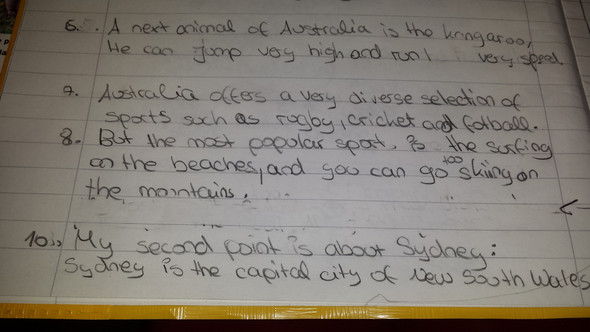 6. A next animal of Australia is the kangaroo,
He can jump very high and run very speed
7. Australia offers a very diverse selection of
sports such as rugby, cricket and football.
8. But the most popular sport, is the surfing
on the beaches, and you can go too skiing on
the mountains.
10. My second point is about Sydney:
Sydney is the capital city of New South Wales